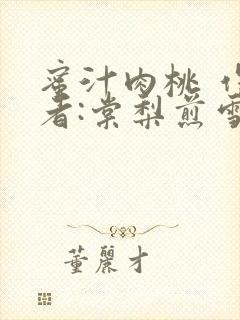 蜜汁肉桃 作
者:棠梨煎雪
董丽才